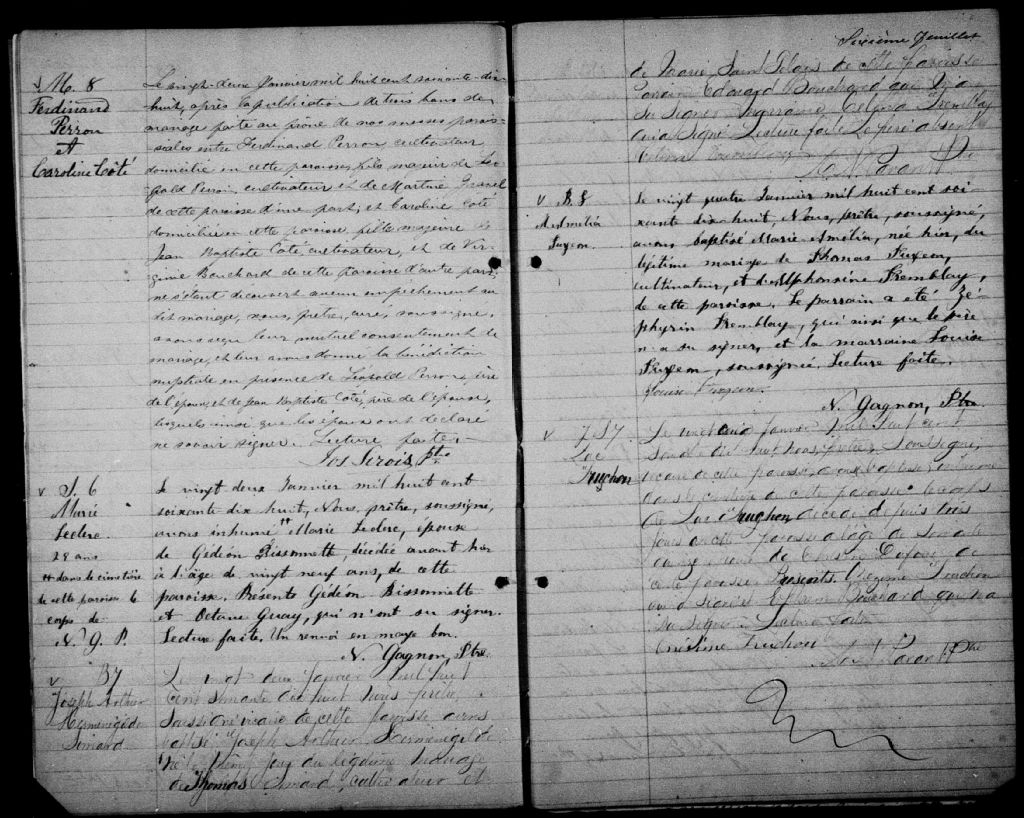 M. 8
Ferdinand
Perron
et
Caroline Côté
Le vingt-deux Janvier mil huit cent soixante-dix
huit, après la publication de trois bans de
mariage faite au prône de nos messes parois-
siales entre Ferdinand Perron cultivateur
domicilié en cette paroisse, fils majeur de Léo-
pold Perron, cultivateur et de Martine
de cette paroisse d'une part; et Caroline Coté
domiciliée en cette paroisse, fille majeure de
Jean Baptiste Coté, cultivateur, et de Vir-
ginie Bouchard de cette paroisse d'autre part;
ne s'étant découvert aucun empêchement au
dit mariage, nous, prêtre, curé, soussigné,
avons reçu leur mutuel consentement de
mariage, et leur avons donné la bénédiction
nuptiale en présence de Léopold Perron, père
de l'époux, et de Jean Baptiste Coté, père de l'épouse,
lesquels ainsi que les époux ont déclaré
ne savoir signer. Lecture faite.
Jos Sirois, Ptre
S. 6
Marie
Leclerc
28 ans
# dans le cimetière
de cette paroisse le
corps de
N. G. P.
Le vingt deux Janvier mil huit cent
soixante dix huit, Nous, prêtre, soussigné,
avons inhumé # Marie Leclerc, épouse
de Gédéon Bissonnette, décédée avant hier
à l'âge de vingt neuf ans, de cette
paroisse. Présents Gédéon Bissonnette
et Octave Guay, qui n'ont su signer.
Lecture faite. Un renvoi en marge bon.
N. Gagnon, Ptre
B 7
Joseph Arthur
Herménégilde
Simard
Le vingt deux Janvier mil huit
cent soixante dix huit nous prêtre
soussigné vicaire de cette paroisse avons
baptisé Joseph Arthur Herménégilde
né le jour du légitime mariage
de Thomas Simard, cultivateur et
Sixième feuillet
de Marie de cette paroisse
Parrain Edouard Bouchard qui n'a
su signer Marraine Tremblay
qui a signé Lecture faite Le père absent
Ptre
B. 8
M. Amélia
Le vingt quatre Janvier mil huit cent soi-
xante dix-huit, Nous, prêtre, soussigné,
avons baptisé Marie Amélia, née hier, du
légitime mariage de Thomas
cultivateur, et d'Alphonsine Tremblay,
de cette paroisse. Le parrain a été Zé-
phyrin Tremblay, qui ainsi que le père
n'a su signer, et la marraine Louise
soussignée. Lecture faite.
Louise
N. Gagnon, Ptre
S 7
Truchon
Le vingt Janvier mil huit cent
soixante dix huit nous prêtre soussigné
vicaire de cette paroisse avons inhumé
dans le cimetière de cette paroisse le corps
de Truchon décédé depuis trois
jours en cette paroisse à l'âge de soixante
ans époux de de
cette paroisse Présents Onésime Truchon
qui a signé Bouchard qui n'a
su signer. Lecture faite
Onésime Truchon
Ptre